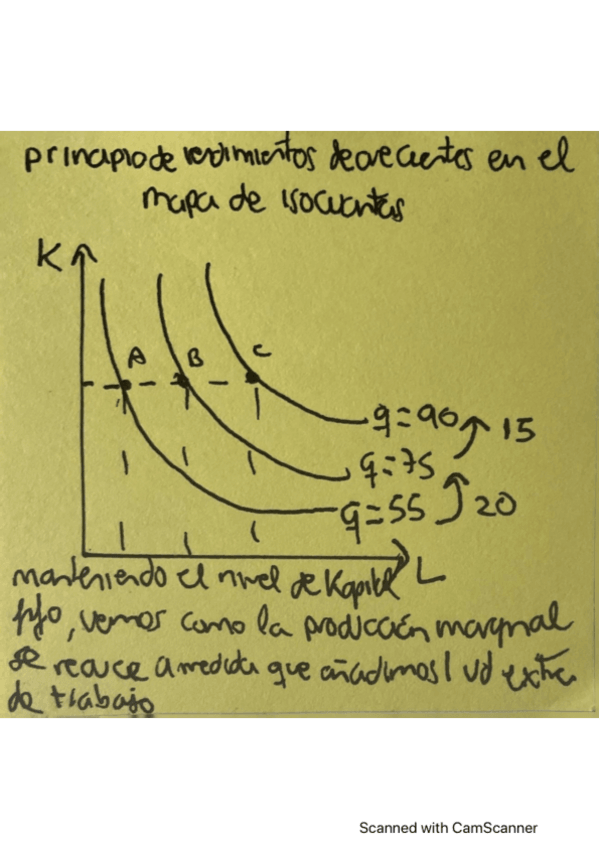 principio de rendimientos decrecientes en el
mapa de isocuantas
K
A
B
C
q=90
15
q=75
q=55
20
L
manteniendo el nivel de Kapital
fijo, vemos como la producción marginal
se reduce a medida que añadimos 1 ud extra
de trabajo
Scanned with CamScanner